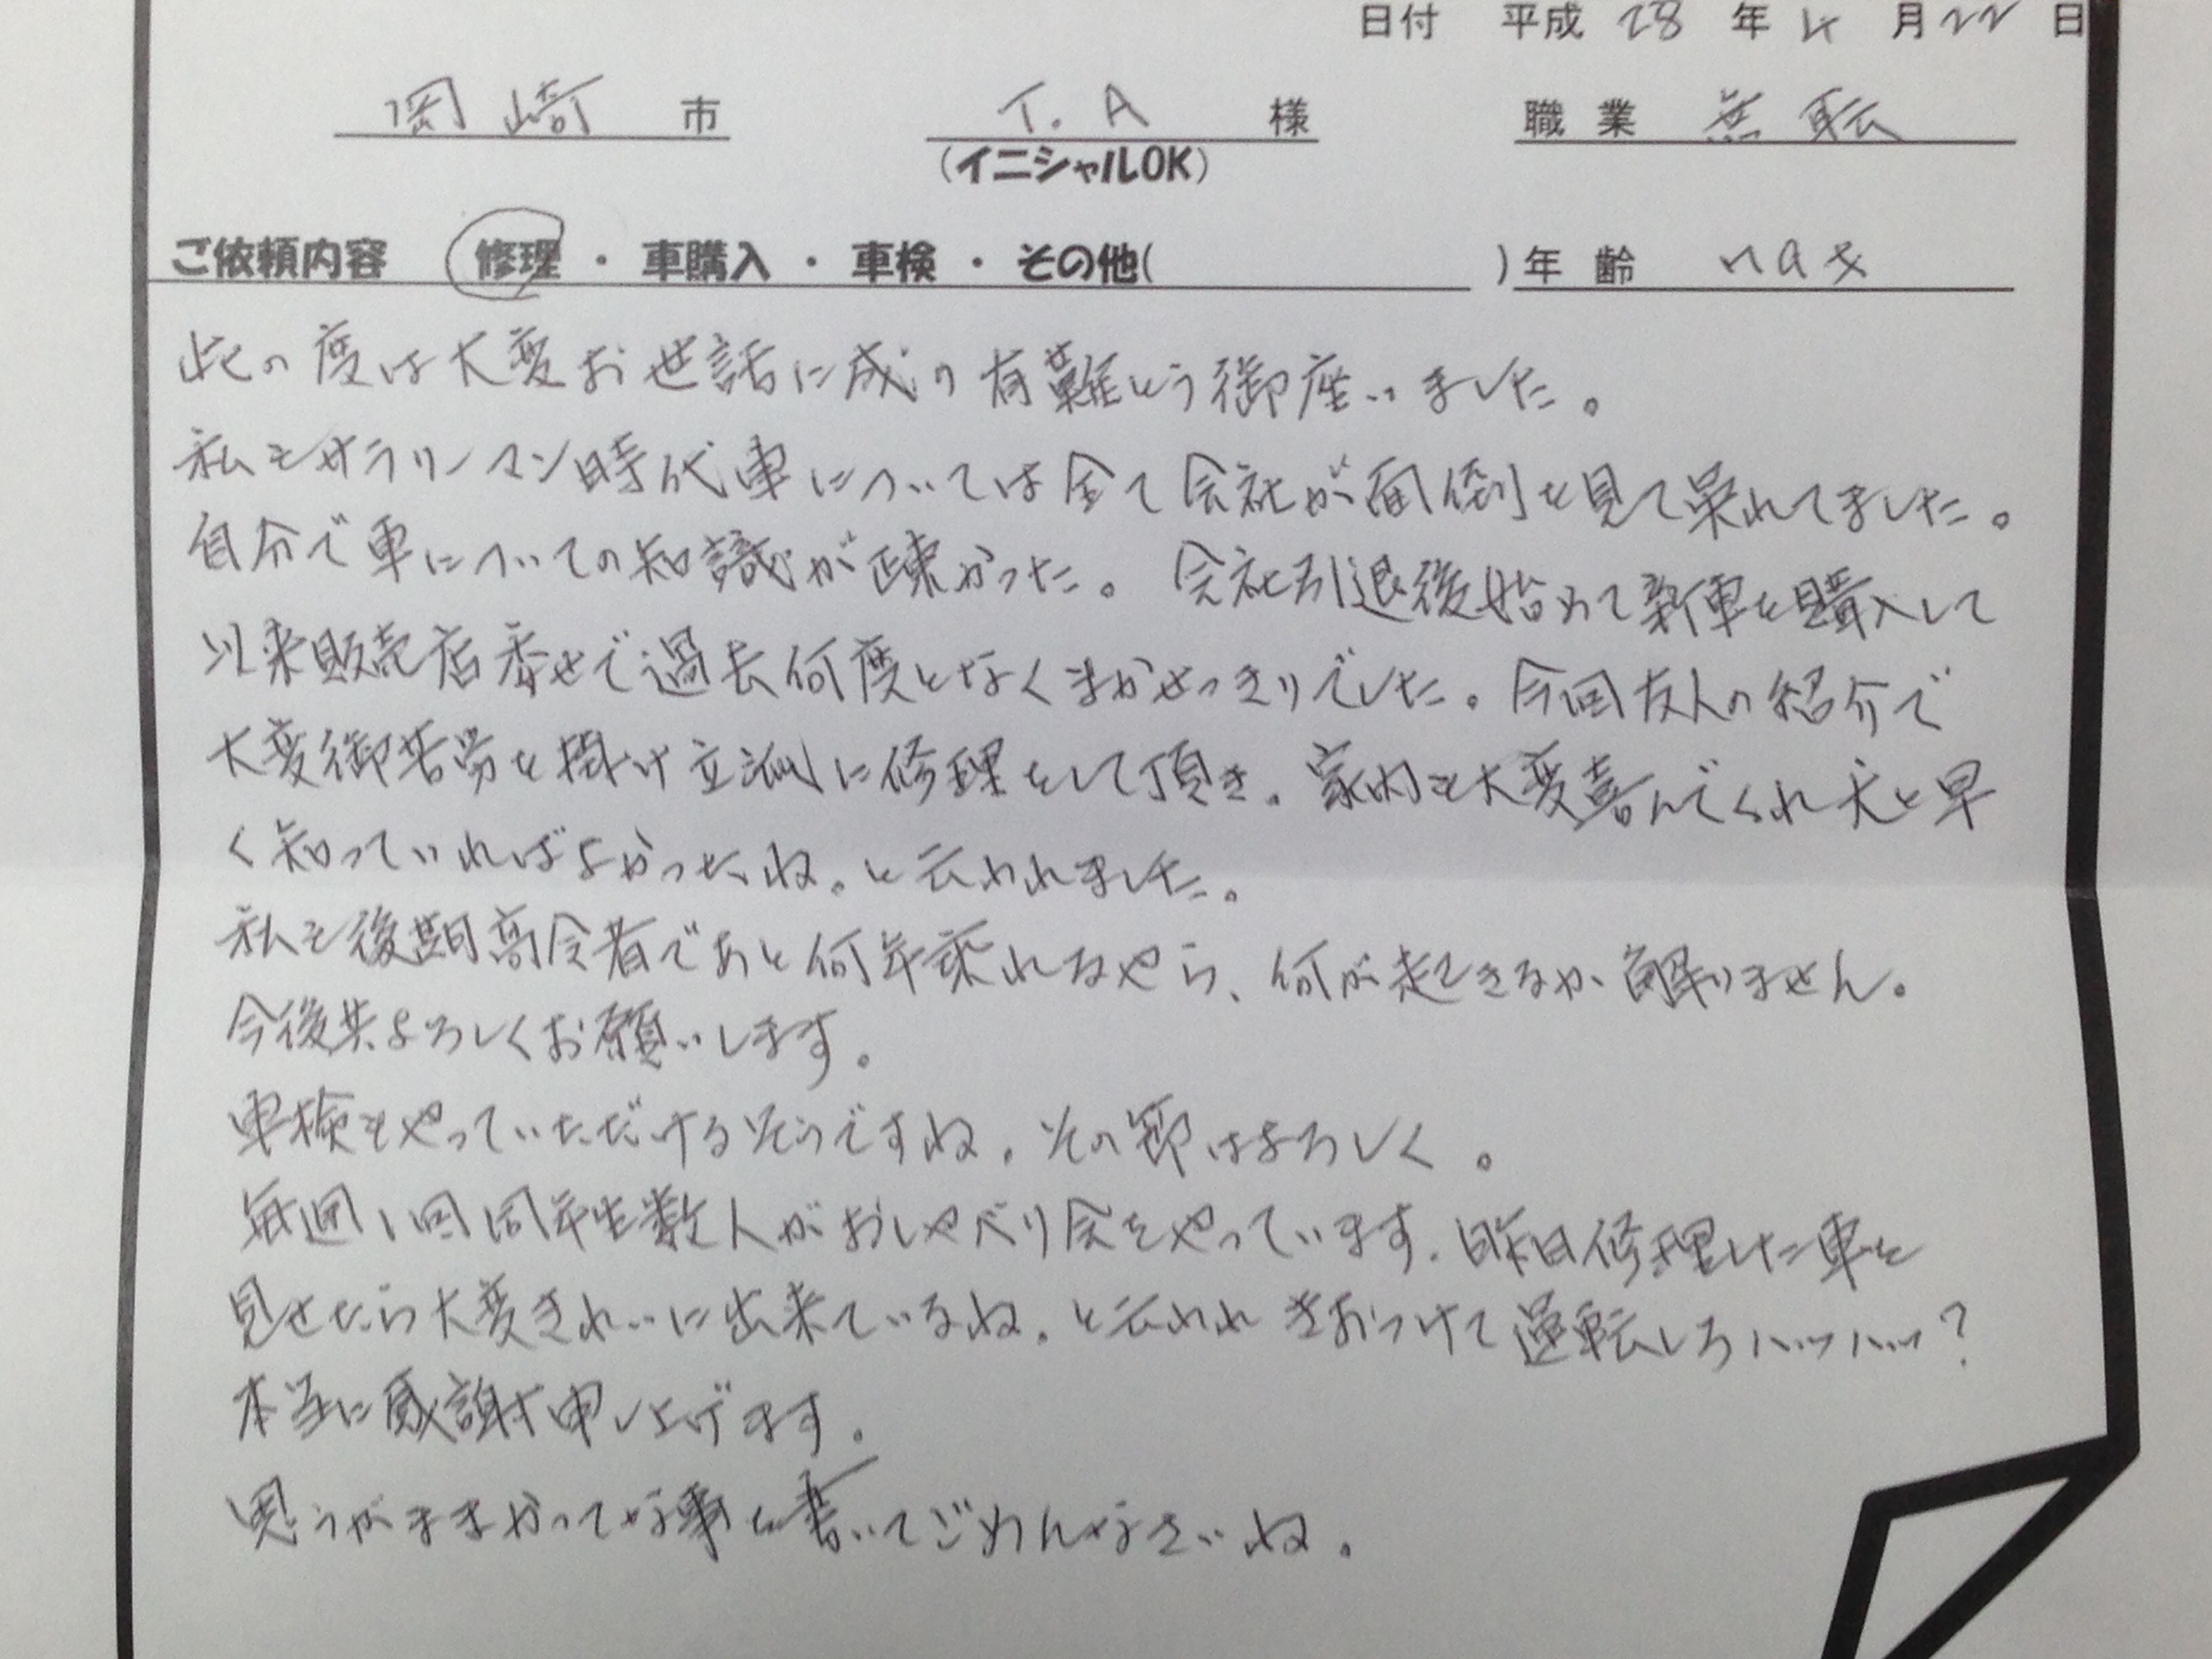 日付 平成 28 年 4 月 22 日
岡崎 市 T.A 様 職業 無転
(イニシャルOK)
ご依頼内容 修理 ・ 車購入 ・ 車検 ・ その他( ) 年齢
此の度は大変お世話に成り有難とう御座いました。
私もサラリーマン時代車については全て会社が面倒を見て呉れてました。
自分で車についての知識が疎かった。会社引退後始めて新車を購入して
以来販売店委せで過去何度となくまかせっきりでした。今回友人の紹介で
大変御苦労を掛け立派に修理をして頂き。家内も大変喜んでくれ もっと早
く知っていればよかったね。と云われました。
私も後期高令者であと何年乗れるやら、何が起きるか解りません。
今後共よろしくお願いします。
車検もやっていただけるそうですね。その節はよろしく。
毎週1回同年生数人がおしゃべり会をやっています。昨日修理した車を
見せたら大変きれいに出来ているね。と云われ きおつけて運転しろハッハッ?
本当に感謝申し上げます。
思うがままかってな事を書いてごめんなさいね。